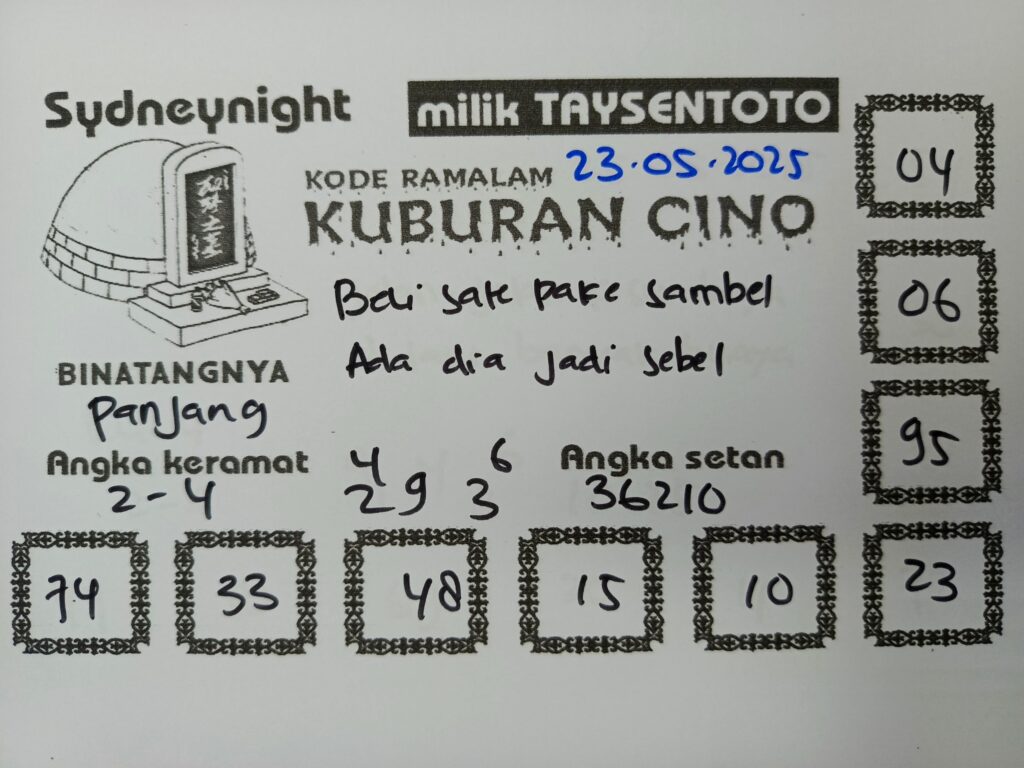 Sydneynight
milik TAYSENTOTO
KODE RAMALAM 23.05.2025
KUBURAN CINO
Beli sate pake sambel
Ada dia jadi sebel
BINATANGNYA
Panjang
Angka keramat
2-4
4 6
2 9 3
Angka setan
36210
04
06
95
23
74 33 48 15 10